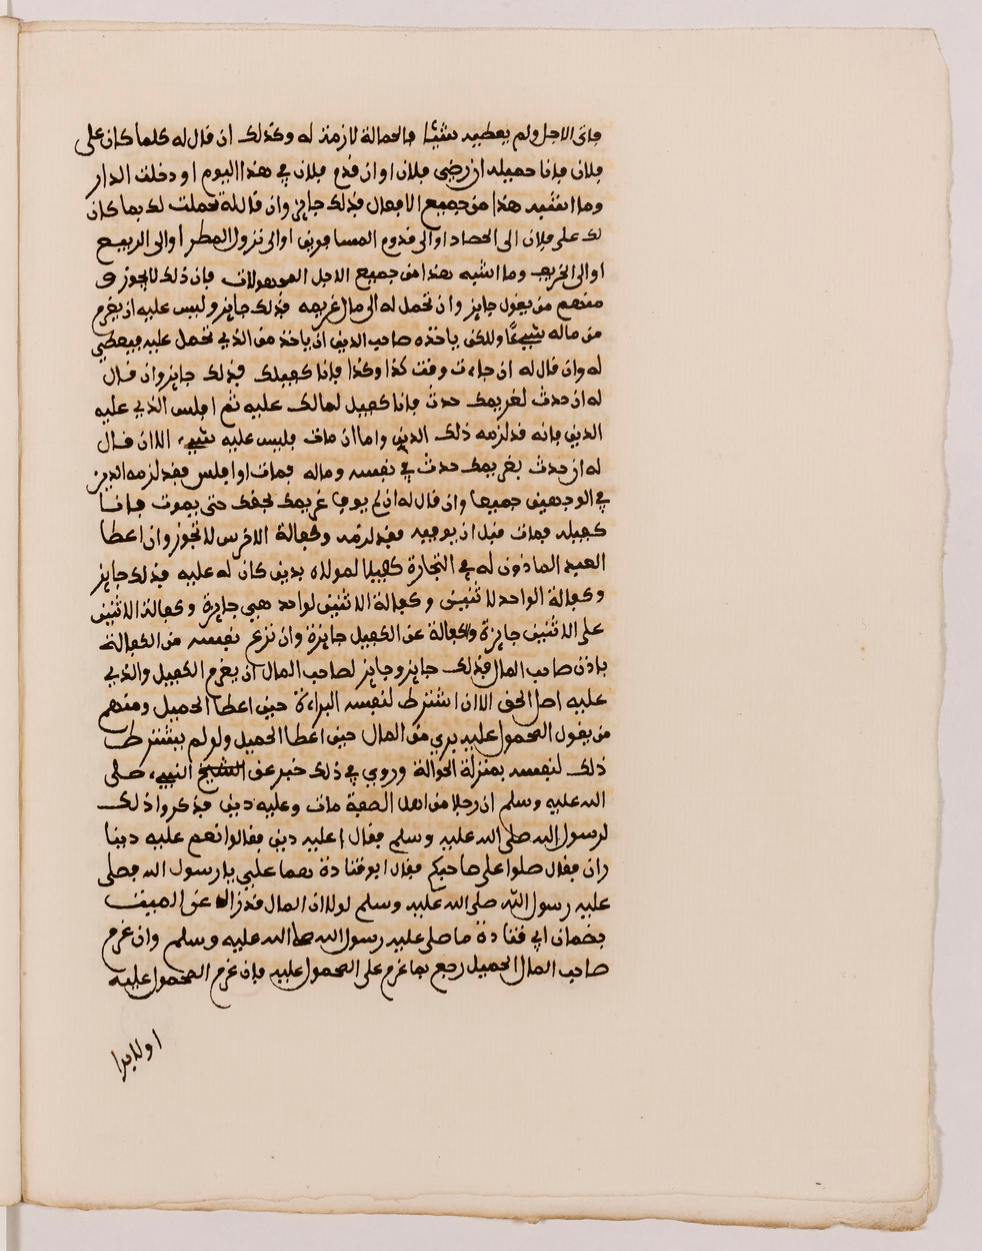 فاتى الاجل ولم يعطيه شيئا فالحمالة لازمة له وكذلك ان قال له كلما كان على
فلان فانا حميله ان رضي فلان او ان قدم فلان في هذا اليوم او دخلت الدار
وما اشبه هذا من جميع الافعال فذلك جايز وان قال له تحملت لك بما كان
لك على فلان الى الحصاد او الى قدوم المسافرين او الى نزول المطر او الى الربيع
او الى الخريف وما اشبه هذا من جميع الاجل المجهولات فان ذلك لا يجوز و
منهم من يقول جايز وان تحمل له الى مال غريمه فذلك جايز وليس عليه ان يغرم
من ماله شيئا ولكن ياخذه صاحب الدين ان ياخذ من الذي تحمل عليه فيعطي
له وان قال له ان جاءت وقت كذا وكذا فانا كفيلك فذلك جايز وان قال
له ان حدث لغريمك حدث فانا كفيل لمالك عليه ثم افلس الذي عليه
الدين فانه قد لزمه ذلك الدين واما ان مات فليس عليه شيء الا ان قال
له ان حدث بغريمك حدث في نفسه وماله فمات او افلس فقد لزمه الدين
في الوجهين جميعا وان قال له ان لم يوف غريمك لحقك حتى يموت فانا
كفيله فمات قبل ان يوفيه فقد لزمه وكفالة الاخرس لا تجوز وان اعطا
العبد الماذون له في التجارة كفيلا لمولاه بدين كان له عليه فذلك جايز
وكفالة الواحد لاثنين وكفالة الاثنين لواحد فهي جايزة وكفالة الاثنين
على الاثنين جايزة والكفالة عن الكفيل جايزة وان نزع نفسه من الكفالة
باذن صاحب المال فذلك جايز وجايز لصاحب المال ان يغرم الكفيل والذي
عليه اصل الحق الا ان اشترط لنفسه البراءة حين اعطا الحميل ومنهم
من يقول المحمول عليه بري من المال حين اعطا الحميل ولو لم يشترط
ذلك لنفسه بمنزلة الحوالة وروي في ذلك خبر عن الشيخ النبيء صلى
الله عليه وسلم ان رجلا من اهل الصفة مات وعليه دين فذكروا ذلك
لرسول الله صلى الله عليه وسلم فقال اعليه دين فقالوا نعم عليه دينا
ران فقال صلوا على صاحبكم فقال ابو قتادة هما علي يا رسول الله فصلى
عليه رسول الله صلى الله عليه وسلم لولا ان المال قد زال عن الميت
بضمان ابي قتادة ما صلى عليه رسول الله صلى الله عليه وسلم وان غرم
صاحب المال الحميل رجع بما غرم على المحمول عليه فان غرم المحمول عليه
اولا يرا